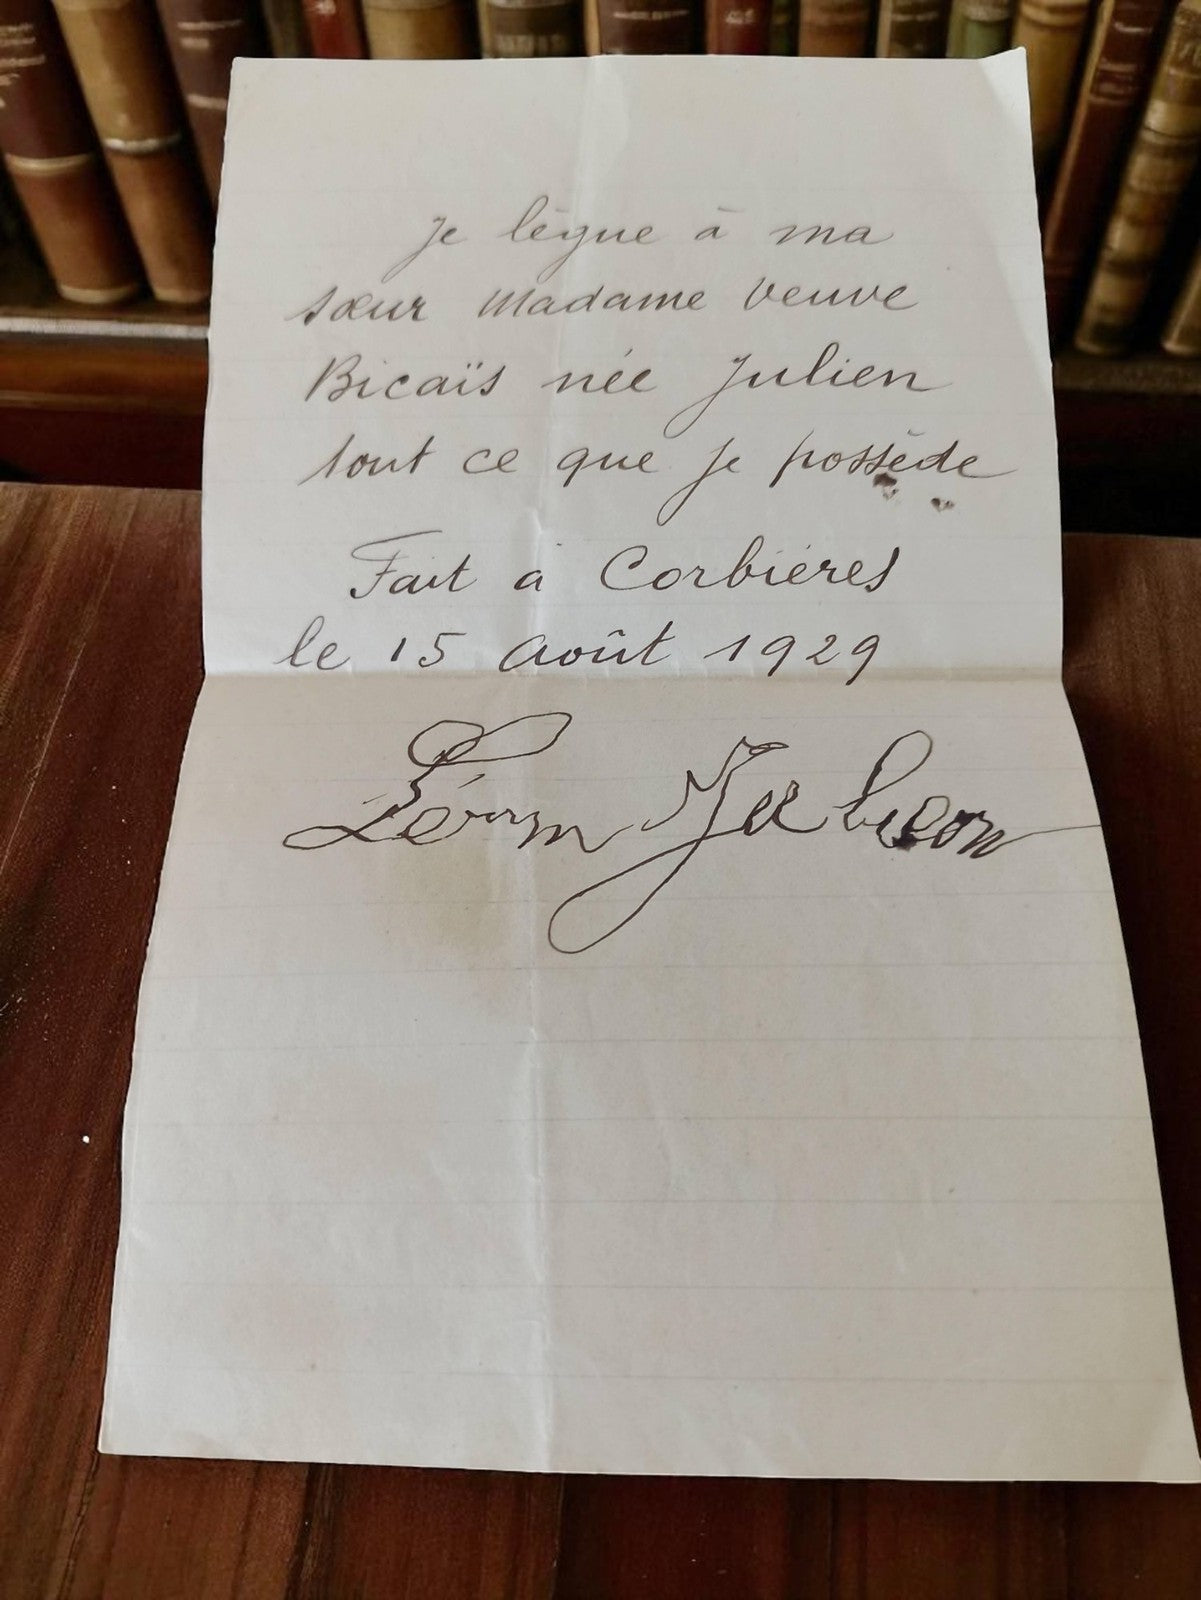 Je lègue à ma
sœur Madame Veuve
Bicaïs née Julien
tout ce que je possède
Fait à Corbières
le 15 Août 1929
Julien